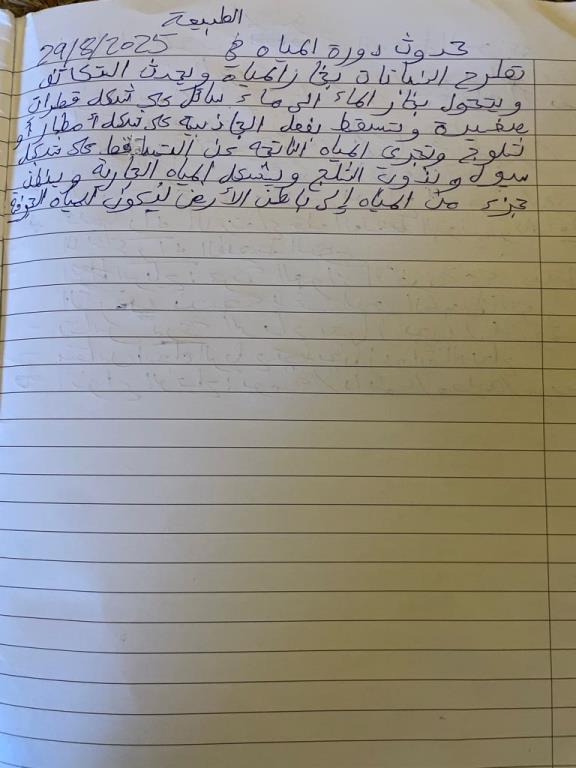 الطبيعة
حدوث دورة المياه 8 29/8/2025
تطرح النباتات بخار المياة ويحدث التكاثف
ويتحول بخار الماء الى ماء سائل على شكل قطرات
صغيرة وتسقط بفعل الجاذبية على شكل أمطار أو
ثلوج وتجري المياه الناتجة عن التساقط على شكل
سيول وتذوب الثلج ويشكل المياه الجارية و
جزء من المياه إلى باطن الأرض ليكون المياه الجوفية